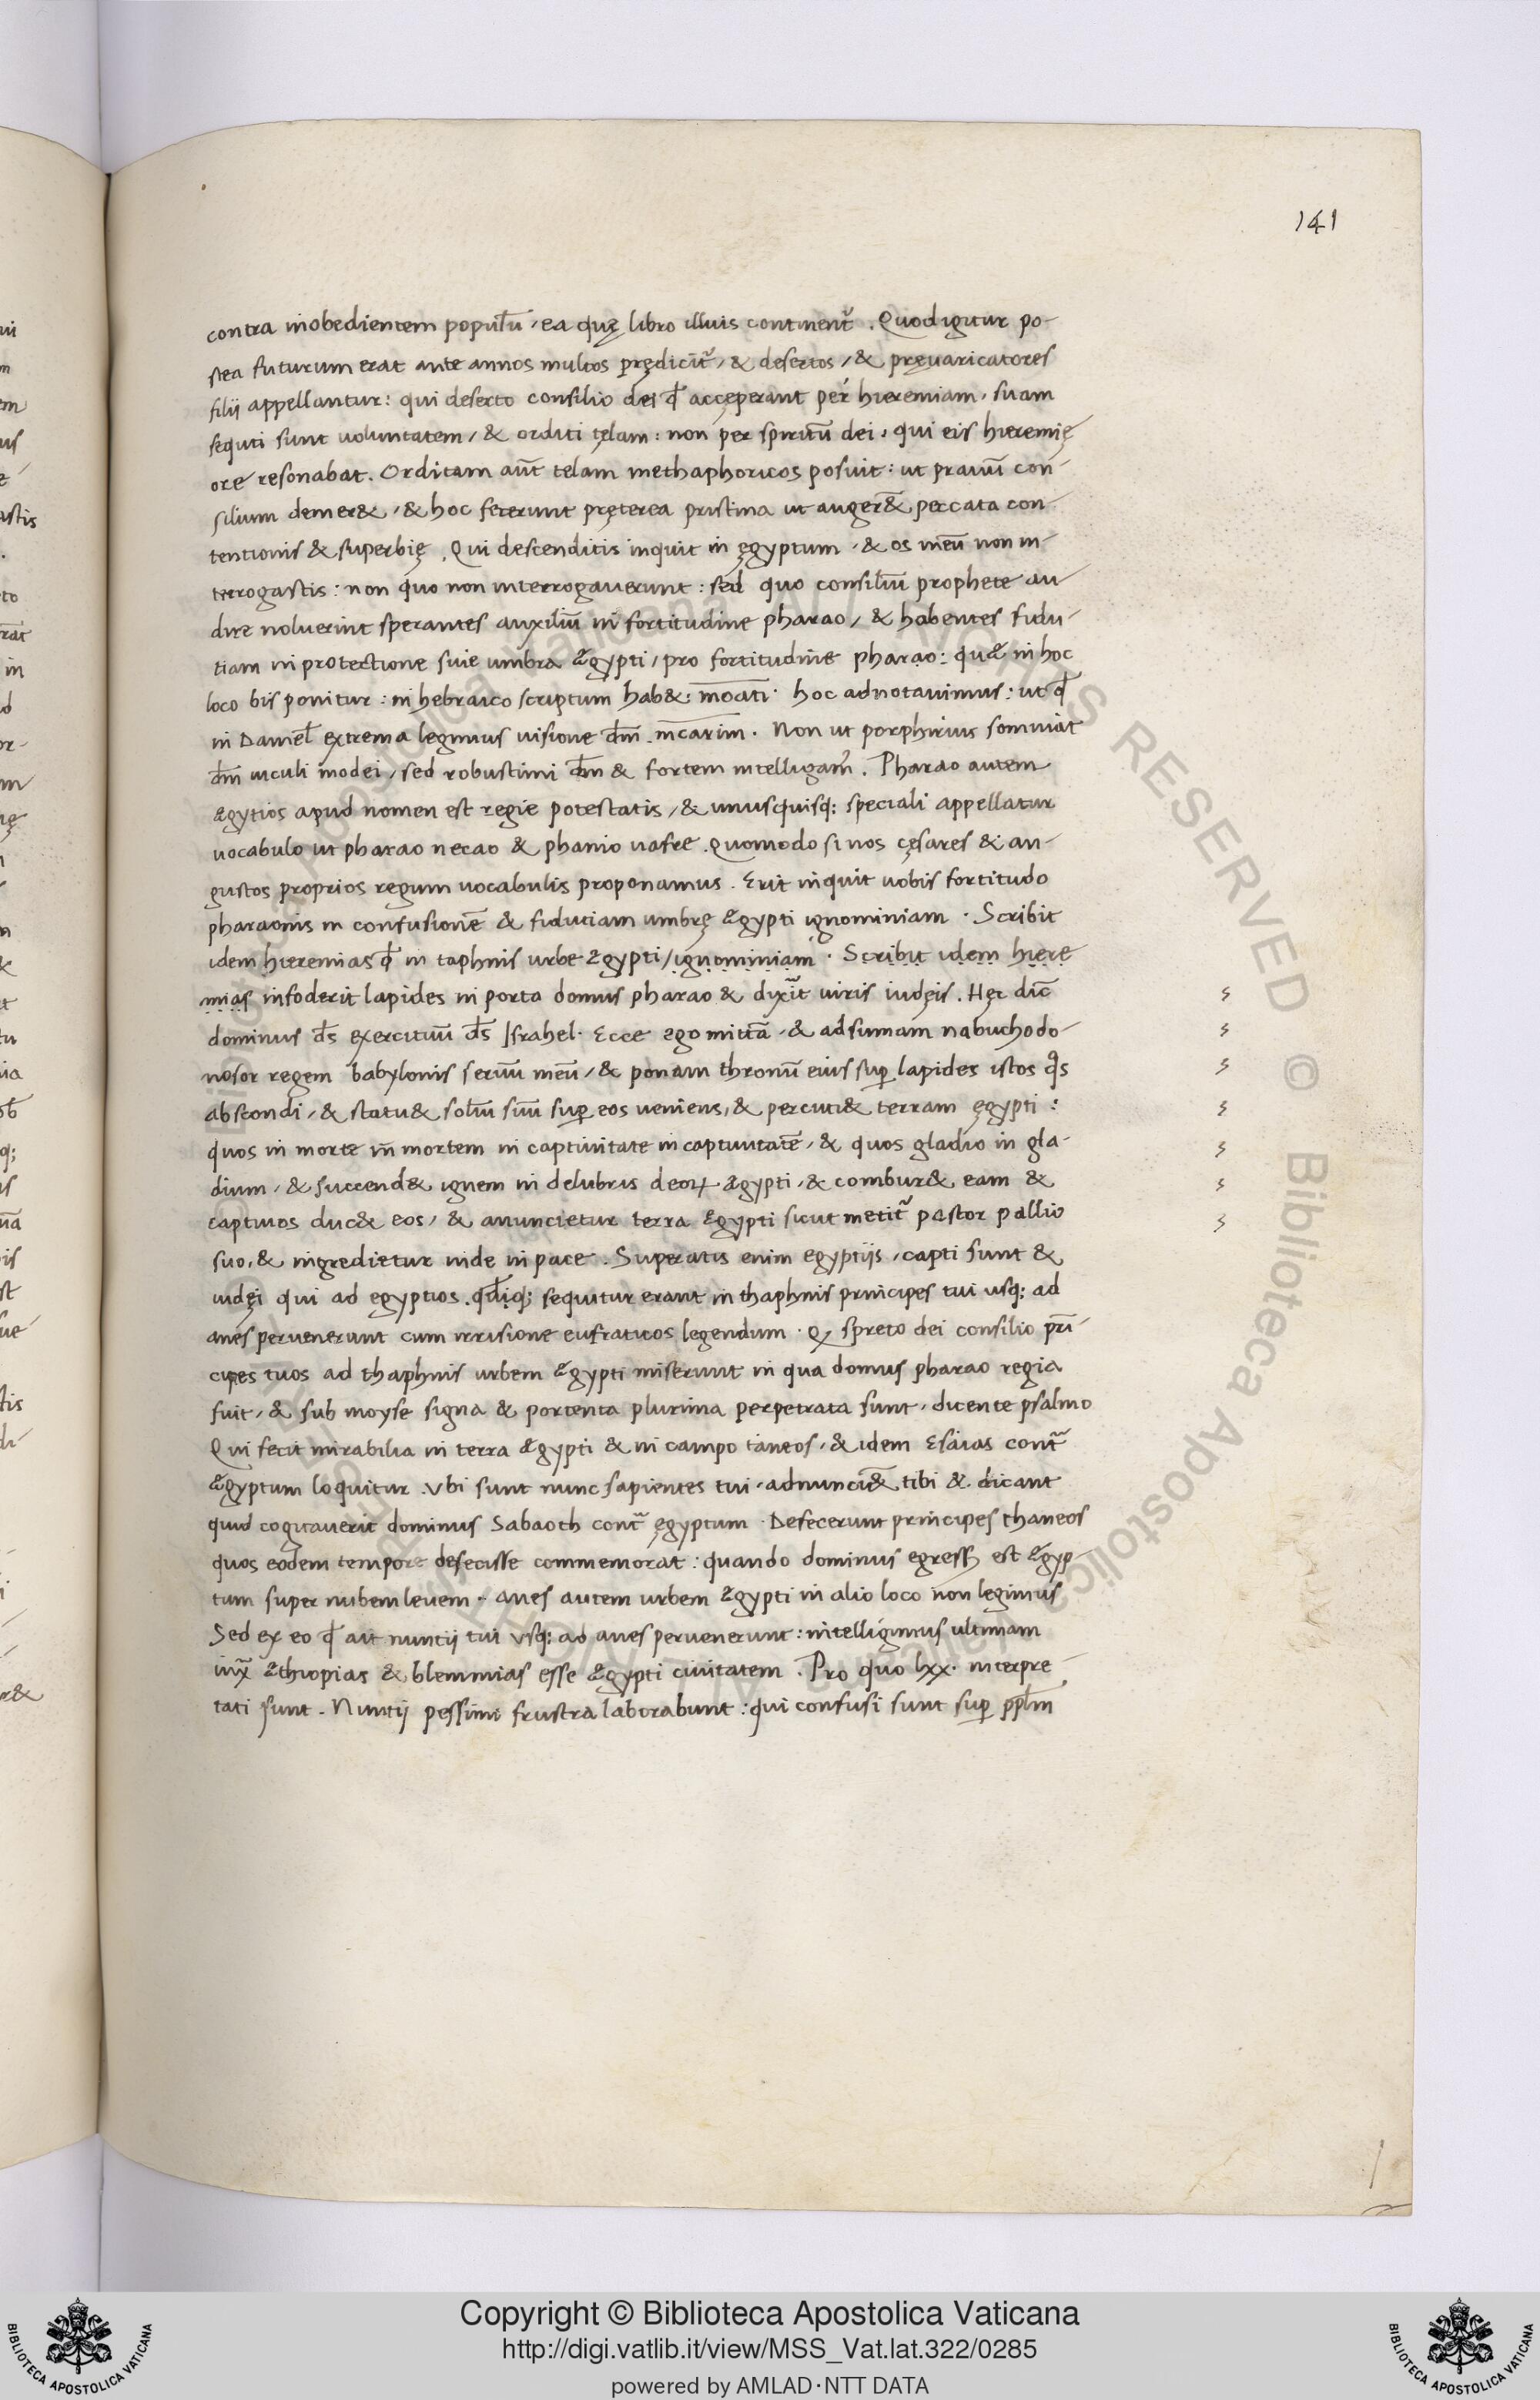 141
contra inobedientem popul̄u, ea quę libro illius continent̄. Quodigitur po-
stea futurum erat ante annos multos prędicit̄, & desertos, & pręuaricatores
filij appellantur: qui deserto consilio dei qđ acceperant per hieremiam, suam
sequti sunt uoluntatem, & orditi telam: non per spiritū dei, qui eis hieremię
ore resonabat. Orditam aūt telam methaphoricos posuit: ut prauū con-
silium demer&, & hoc fecerunt pręterea pristina ut auger& peccata con-
tentionis & superbię. Qui descenditis inquit in ęgyptum, & os meū non in-
terrogastis: non quo non interrogauerunt: sed quo consiliū prophete au-
dire noluerint sperantes auxiliū in fortitudine pharao, & habentes fidu-
tiam in protectione suie umbra Ægypti, pro fortitudine pharao: quæ in hoc
loco bis ponitur: in hebraico scriptum hab&: moati. hoc adnotauimus: ut qđ
in Daniel̄ extrema legimus uisione dm̄ m̄carim. Non ut porphirius somniat
dm̄ uiculi modei, sed robustimi dm̄ & fortem intelligam̄. Pharao autem
ægytios apud nomen est regie potestatis, & unusquisq; speciali appellatur
uocabulo ut pharao necao & phanio uafre. Quomodo si nos cęsares & au-
gustos proprios regum uocabulis proponamus. Erit inquit uobis fortitudo
pharaonis in confusionē & fiduciam umbrę Ægypti ignominiam. Scribit
idem hieremias qđ in taphnis urbe Ægypti, ignominiam. Scribit idem hiere
mias infoderit lapides in porta domus pharao & dixīt uiris iudęis. Hęc dic̄
dominus ds̄ exercituū ds̄ Israhel. Ecce ego mittā, & adsumam nabuchodo-
nosor regem babylonis seruū meū, & ponam thronū eius sup̱ lapides istos q̄s
abscondi, & statu& soliū suū sup̱ eos ueniens, & percuti& terram ęgypti:
quos in morte in̄ mortem in captiuitate in captiuitatē, & quos gladio in gla-
dium, & succend& ignem in delubris deoꝝ Ægypti, & combur& eam &
captiuos duc& eos, & anuncietur terra Ægypti sicut metit̄ pastor pallio
suo, & ingredietur inde in pace. Superatis enim egyptijs, capti sunt &
iudęi qui ad egyptios. qđiq; sequitur erant in thaphnis principes tui usq; ad
anes peruenerunt cum irrisione eufraticos legendum. Qꝫ spreto dei consilio prī-
cipes tuos ad thaphnis urbem Ægypti miserunt in qua domus pharao regia
fuit, & sub moyse signa & portenta plurima perpetrata sunt, dicente psalmo
Qui fecit mirabilia in terra Ægypti & in campo taneos, & idem Esaias cont̄
Ægyptum loquitur. Vbi sunt nunc sapientes tui, adnunci& tibi & dicant
quid cogitauerit dominus Sabaoth cont̄ ęgyptum. Defecerunt principes thaneos
quos eodem tempore defecisse commemorat: quando dominus egressꝫ est Ægyp-
tum super nubem leuem. anes autem urbem Ægypti in alio loco non legimus
Sed ex eo qđ ait nuntij tui usq; ad anes peruenerunt: intelligimus ultimam
iux̄ Æthiopias & blemmias esse Ægypti ciuitatem. Pro quo lxx. interpre-
tati sunt. Nuntij pessimi frustra laborabunt: qui confusi sunt sup̱ pp̄lm
Copyright © Biblioteca Apostolica Vaticana
http://digi.vatlib.it/view/MSS_Vat.lat.322/0285
powered by AMLAD·NTT DATA